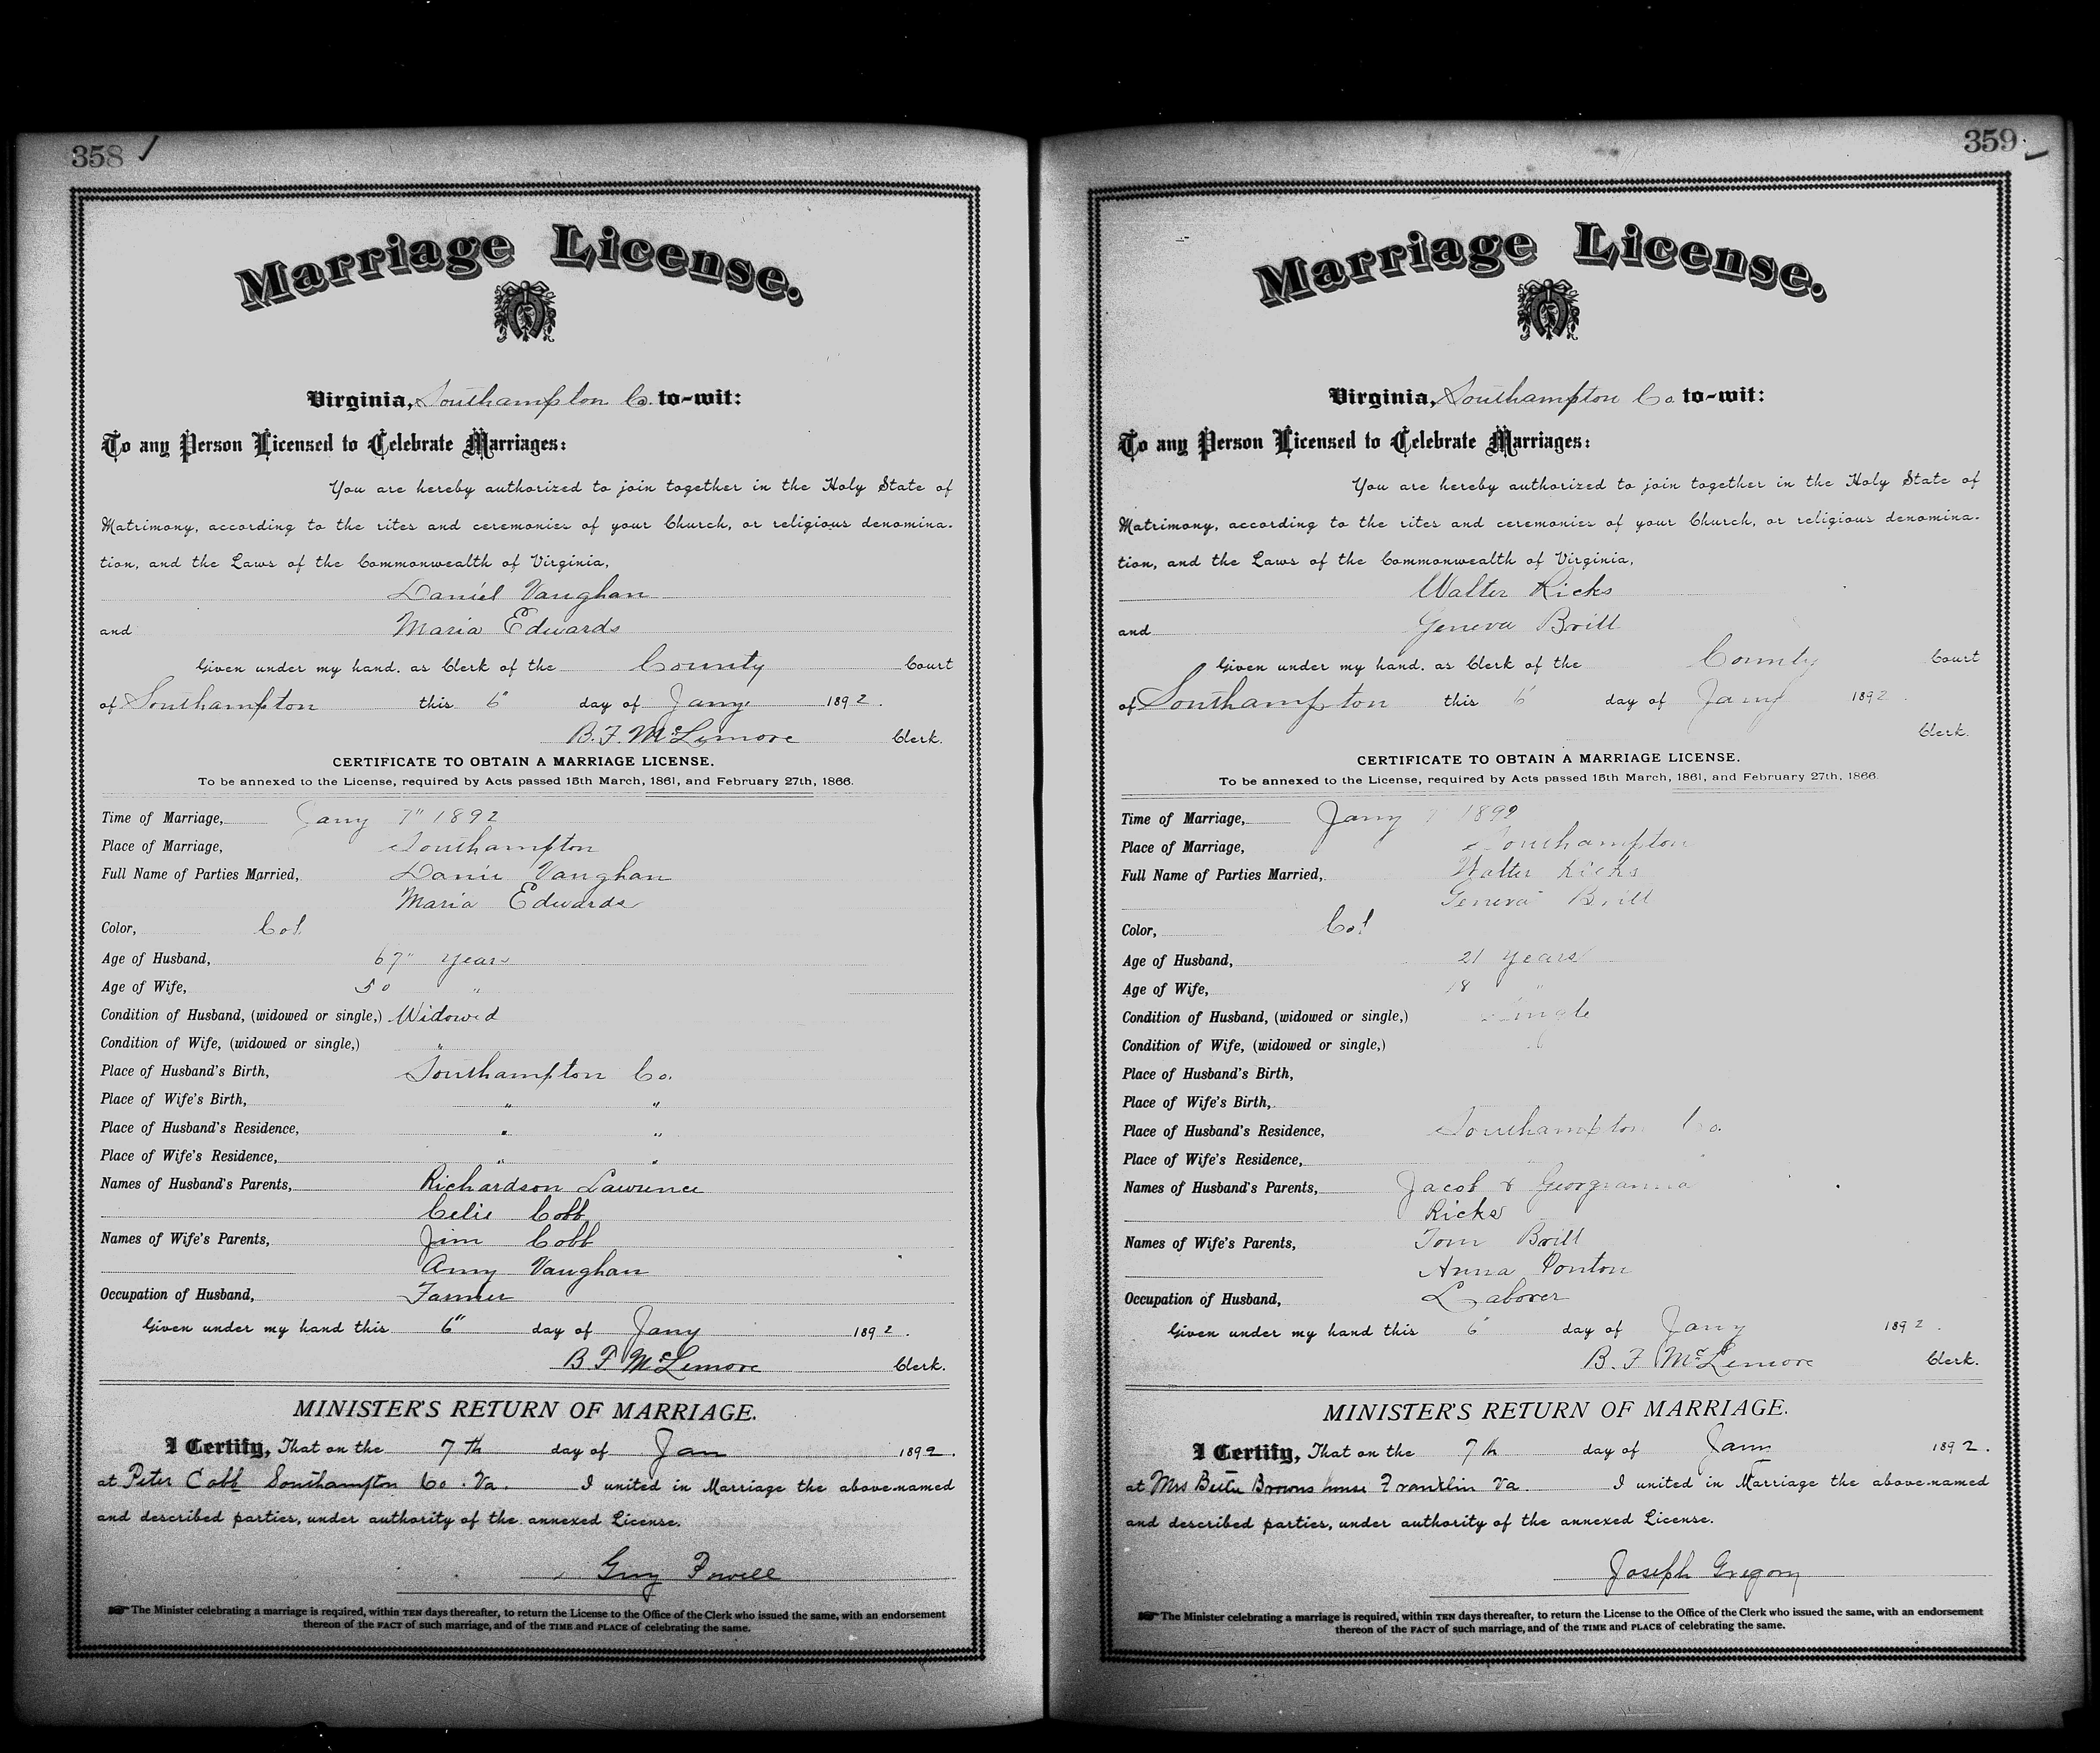 358
Marriage License.
Virginia, Southampton Co. to-wit:
To any Person Licensed to Celebrate Marriages:
You are hereby authorized to join together in the Holy State of
Matrimony, according to the rites and ceremonies of your Church, or religious denomina-
tion, and the Laws of the Commonwealth of Virginia,
Daniel Vaughan
and Maria Edwards
Given under my hand, as Clerk of the County Court
of Southampton this 6" day of Jany 1892.
B. F. McLemore Clerk.
CERTIFICATE TO OBTAIN A MARRIAGE LICENSE.
To be annexed to the License, required by Acts passed 15th March, 1861, and February 27th, 1866.
Time of Marriage, Jany 7" 1892
Place of Marriage, Southampton
Full Name of Parties Married, Vaughan
Maria Edwards
Color, Col
Age of Husband, 67" years
Age of Wife, 50 "
Condition of Husband, (widowed or single,) Widowed
Condition of Wife, (widowed or single,) "
Place of Husband's Birth, Southampton Co.
Place of Wife's Birth, " "
Place of Husband's Residence, " "
Place of Wife's Residence, " "
Names of Husband's Parents, Richardson Lawrence
Celie Cobb
Names of Wife's Parents, Jim Cobb
Amy Vaughan
Occupation of Husband, Farmer
Given under my hand this 6" day of Jany 1892.
B F McLemore Clerk.
MINISTER'S RETURN OF MARRIAGE.
I Certify, That on the 7th day of Jan 1892.
at Peter Cobb Southampton Co. Va. I united in Marriage the above-named
and described parties, under authority of the annexed License.
Guy Powell
The Minister celebrating a marriage is required, within TEN days thereafter, to return the License to the Office of the Clerk who issued the same, with an endorsement
thereon of the FACT of such marriage, and of the TIME and PLACE of celebrating the same.
359
Marriage License.
Virginia, Southampton Co to-wit:
To any Person Licensed to Celebrate Marriages:
You are hereby authorized to join together in the Holy State of
Matrimony, according to the rites and ceremonies of your Church, or religious denomina-
tion, and the Laws of the Commonwealth of Virginia,
Walter Ricks
and Geneva Brill
Given under my hand, as Clerk of the County Court
of Southampton this 6" day of Jany 1892.
Clerk.
CERTIFICATE TO OBTAIN A MARRIAGE LICENSE.
To be annexed to the License, required by Acts passed 15th March, 1861, and February 27th, 1866.
Time of Marriage, Jany 7" 1892
Place of Marriage, Southampton
Full Name of Parties Married, Walter Ricks
Geneva Brill
Color, Col
Age of Husband, 21 years
Age of Wife, 18 "
Condition of Husband, (widowed or single,) Single
Condition of Wife, (widowed or single,) "
Place of Husband's Birth,
Place of Wife's Birth,
Place of Husband's Residence, Southampton Co.
Place of Wife's Residence,
Names of Husband's Parents, Jacob & Georgianna
Ricks
Names of Wife's Parents, Tom Brill
Anna Ponton
Occupation of Husband, Laborer
Given under my hand this 6" day of Jany 1892.
B. F McLemore Clerk.
MINISTER'S RETURN OF MARRIAGE.
I Certify, That on the 7th day of Jany 1892.
at Mrs Browns house Franklin Va. I united in Marriage the above-named
and described parties, under authority of the annexed License.
Joseph Gregory
The Minister celebrating a marriage is required, within TEN days thereafter, to return the License to the Office of the Clerk who issued the same, with an endorsement
thereon of the FACT of such marriage, and of the TIME and PLACE of celebrating the same.